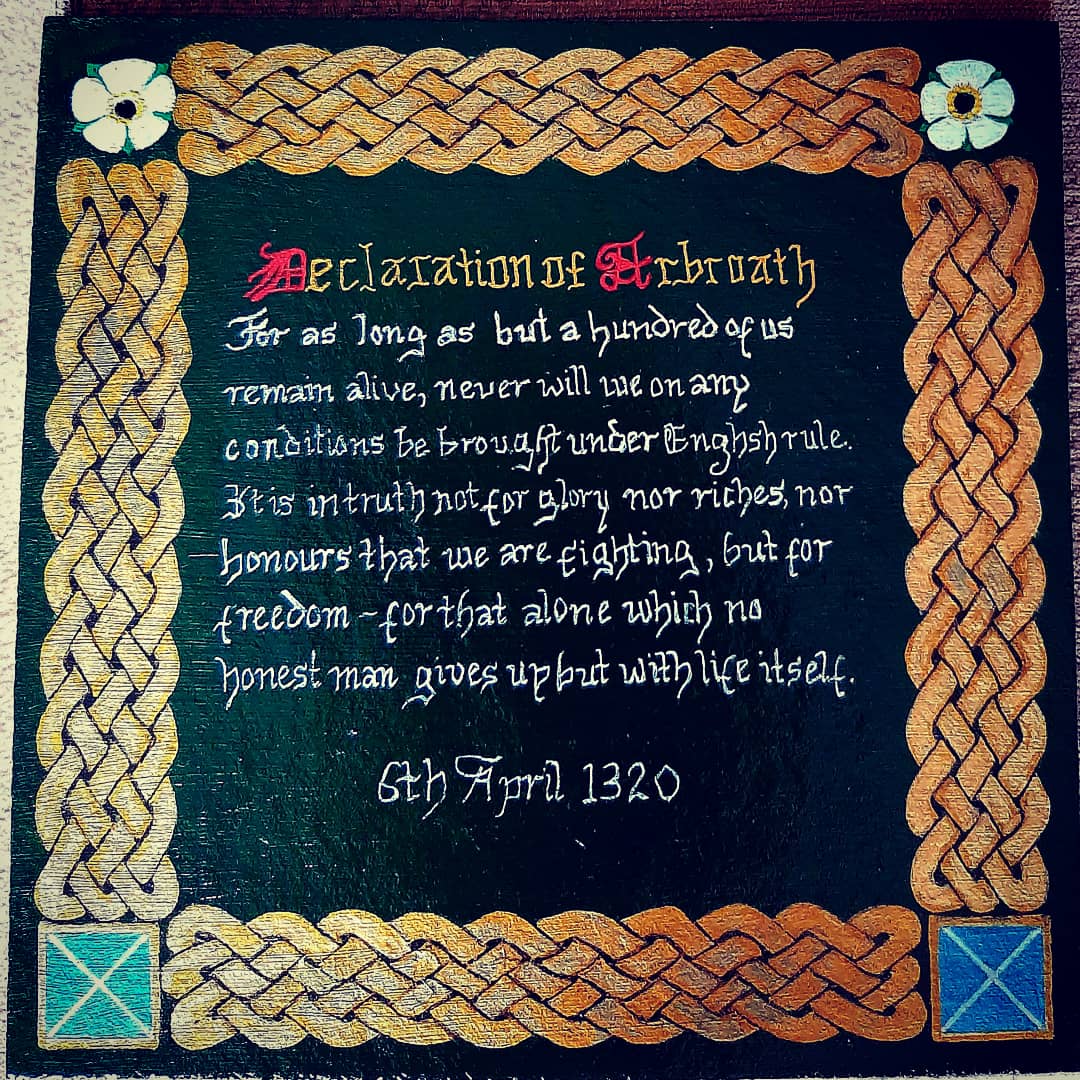 Declaration of Arbroath
For as long as but a hundred of us
remain alive, never will we on any
conditions be brought under English rule.
It is in truth not for glory nor riches, nor
honours that we are fighting, but for
freedom - for that alone which no
honest man gives up but with life itself.
6th April 1320